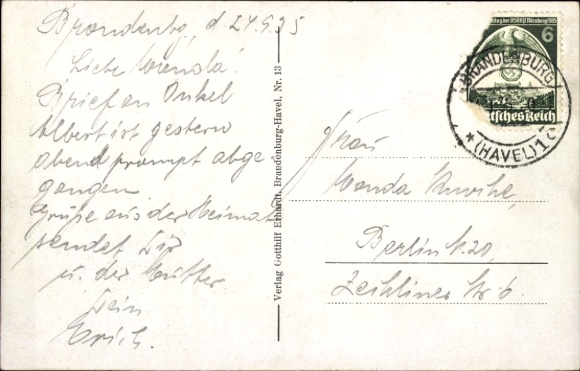 Brandenburg, d 24.9.35
Liebe
Brief an Onkel
Albert ist gestern
abend prompt abge
gangen
Grüße aus der Heimat
sendet Dir
u. der Mutter
Dein
Erich.
Verlag Gotthilf Erhardt, Brandenburg-Havel, Nr. 13
6
Nürnberg 1935
tsches Reich
BRANDENBURG
* (HAVEL) 1
Frau
Wanda
Berlin N.20,
Zechliner Str 6.